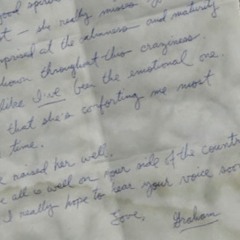 good spirits
— she really misses
surprised at the calmness and maturity
shown throughout this craziness.
like I've been the emotional one.
that she's comforting me most
time.
raised her well.
all is well on your side of the country
I really hope to hear your voice soon
Love, Graham